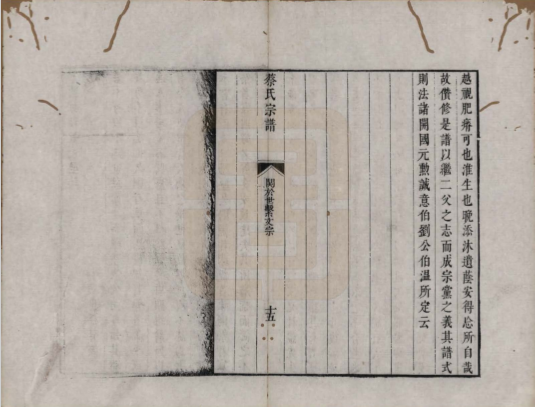 越視肥瘠可也淮生也晚添沐遺蔭安得忘所自哉
故僭修是譜以繼二父之志而成宗黨之義其譜式
則法諸開國元勲誠意伯劉公伯溫所定云
蔡氏宗譜
關於世繫文宗
十五